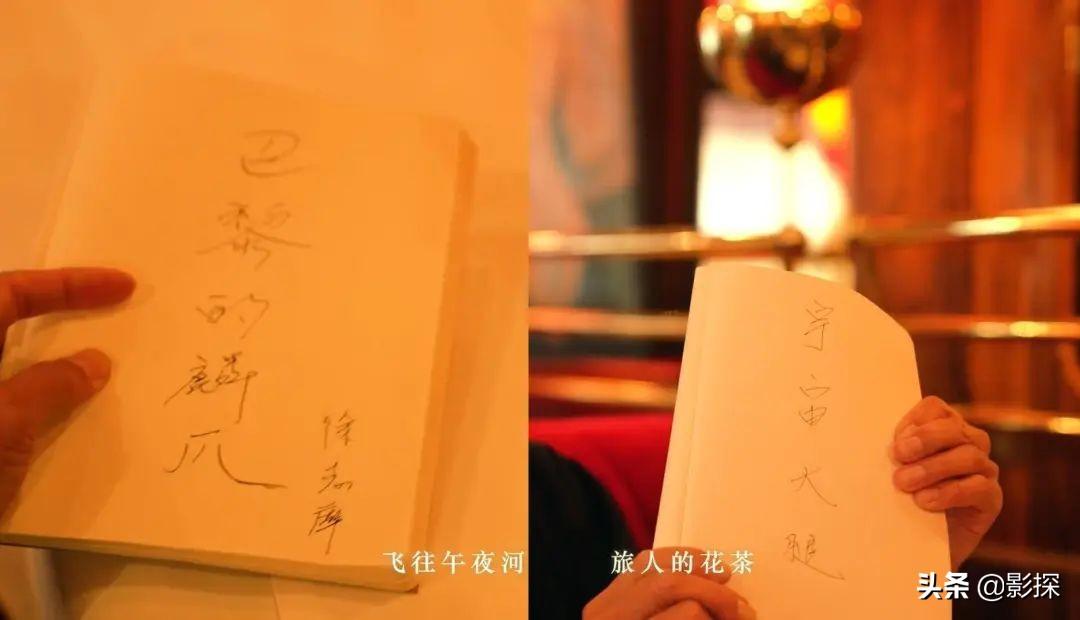 巴黎的麟爪
徐志摩
飞往午夜河
宇宙大腿
旅人的花茶
头条 @影探